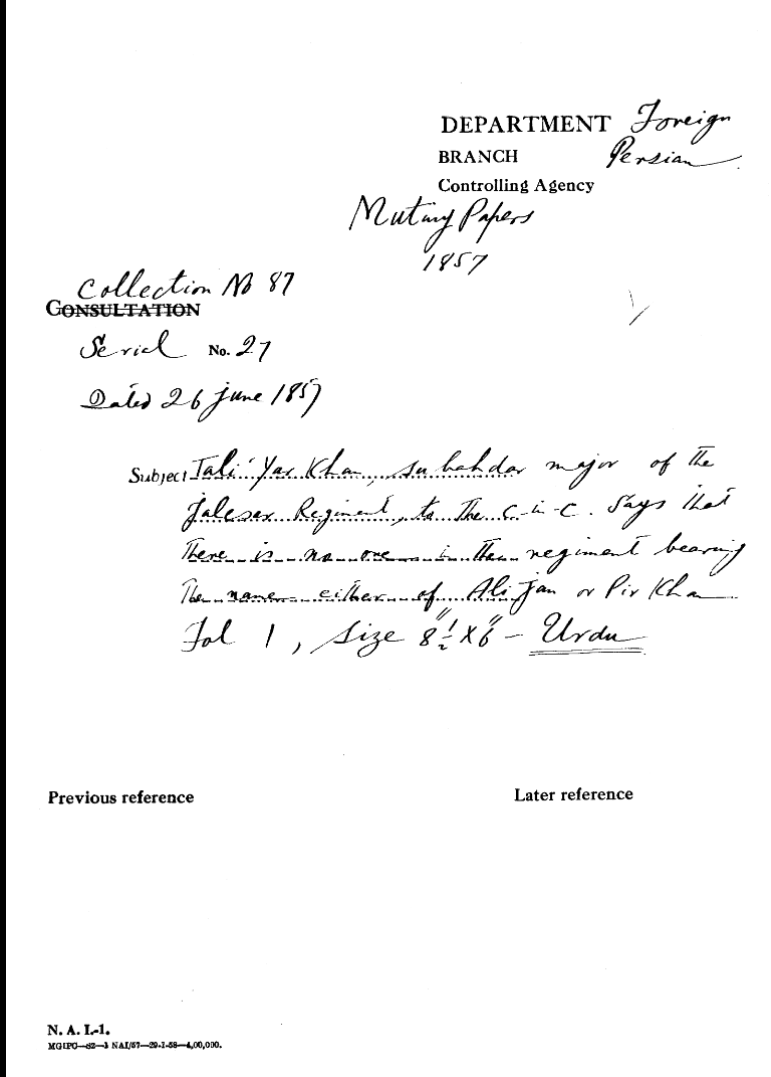 DEPARTMENT Foreign
BRANCH Persian
Controlling Agency
Mutiny Papers
1857
Collection No 87
CONSULTATION
Serial No. 27
Dated 26 June 1857
Subject Tali' Yar Khan, subahdar major of the
Jalesar Regiment, to the C-in-C. Says that
there is no one in the regiment bearing
the name either of Ali Jan or Pir Khan.
Fol 1, Size 8½" X 6" – Urdu
Previous reference Later reference
N. A. I.-1.
MGIPC—S2—3 NAI/57—29-1-58—4,00,000.